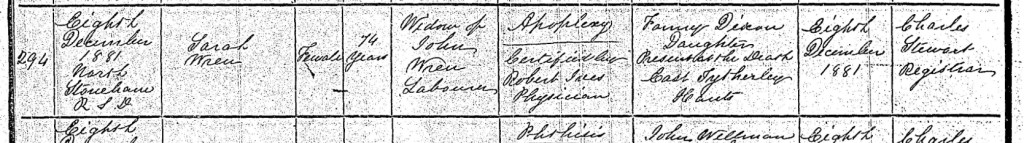 294
Eighth
December
1881
North
Stoneham
R S D
Sarah
Wren
Female
74
Years
Widow of
John
Wren
Labourer
Apoplexy
Certified by
Robert Ives
Physician
Fanny Dixon
Daughter
Present at the Death
East Tytherley
Hants
Eighth
December
1881
Charles
Stewart
Registrar
Eighth
Phthisis
John Wellman
Eighth
Charles